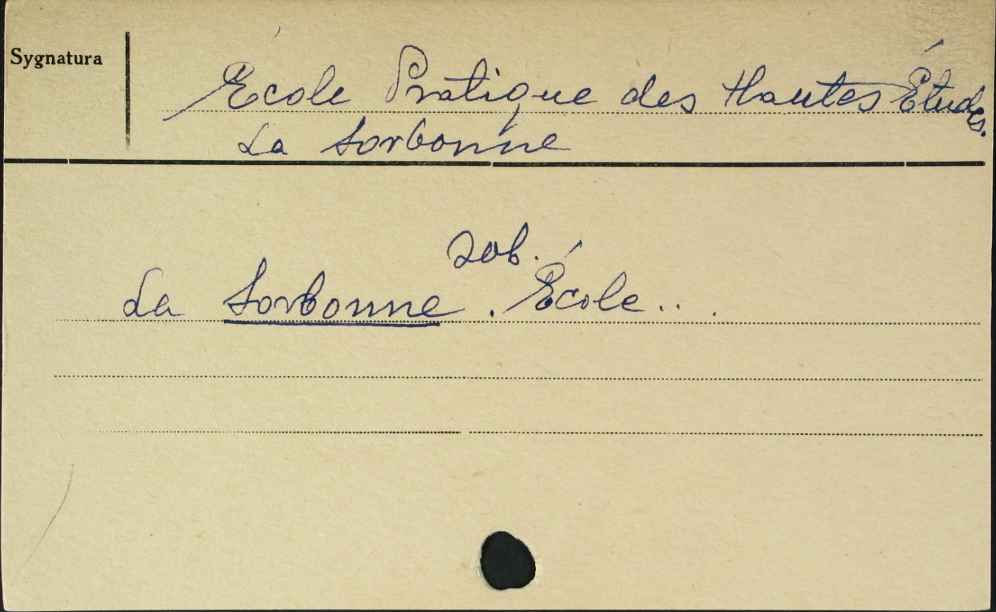 Sygnatura
École Pratique des Hautes Études.
La Sorbonne
zob.
La Sorbonne. École...